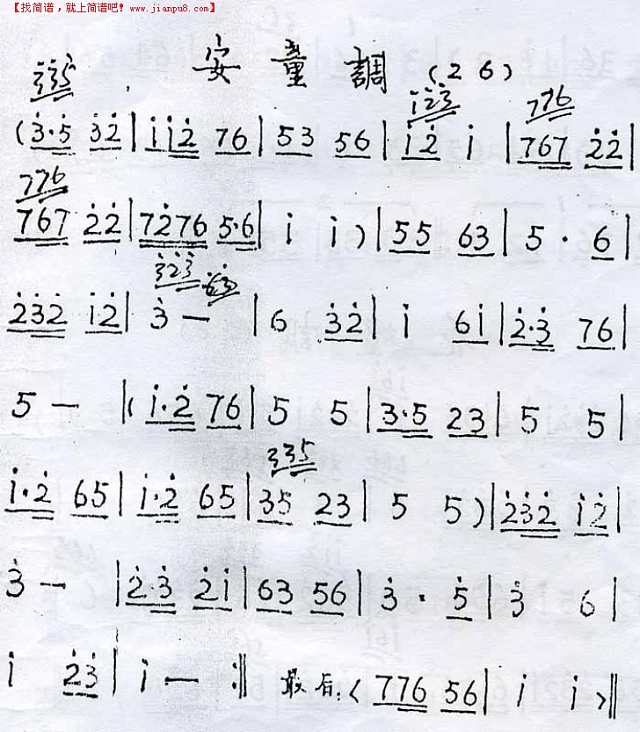 【找简谱,就上简谱吧! www.jianpu8.com】
安童調 (2 6)
3̇3̇5̇ 1̇2̇3̇ 776
(3̇·5̇ 3̇2̇|1̇1̇2̇ 76|53 56|1̇2̇ 1̇|767 2̇2̇|
776
767 2̇2̇|72̇76 5·6|1̇ 1̇)|55 63|5·6|
2̇3̇2̇ 1̇2̇|3̇ —|6 3̇2̇|1̇ 61̇|2̇·3̇ 76|
3̇2̇3̇
5 —|(1̇·2̇ 76|5 5|3·5 23|5 5|
335
1̇·2̇ 65|1̇·2̇ 65|35 23|5 5)|2̇3̇2̇ 1̇2̇|
3̇ —|2̇·3̇ 2̇1̇|63 56|3̇·5̇|3̇ 6|
1̇ 2̇3̇|1̇ —:‖ 最后:<776 56|1̇ 1̇>‖